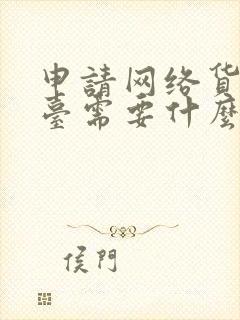 申請网络货
臺需要什麼
侯門